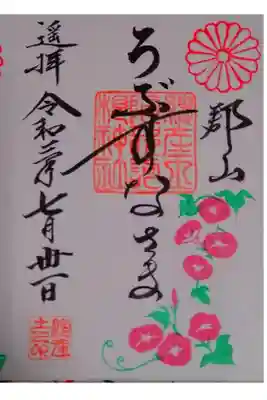 郡山
うぶすなさま
遥拝 令和三年七月卅一日